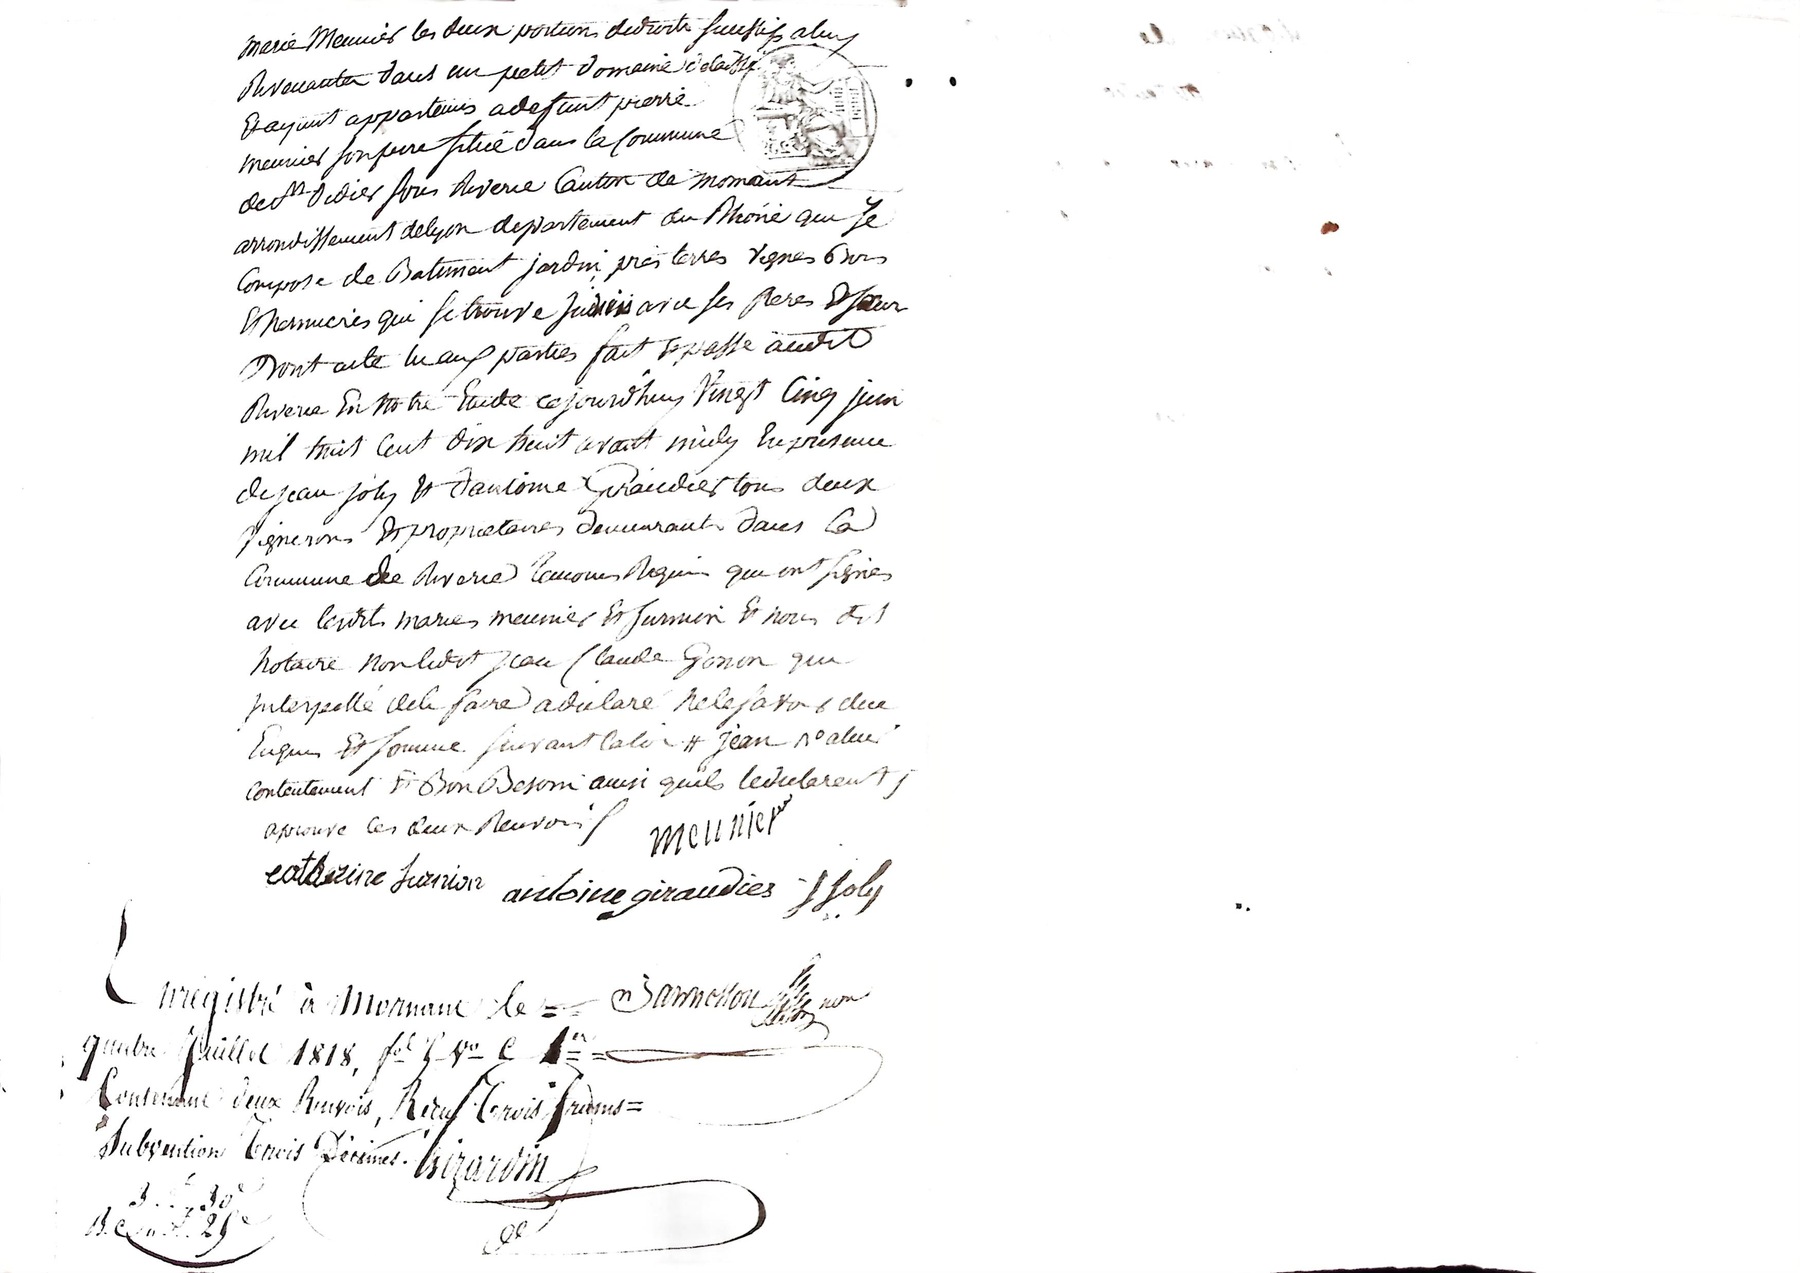 marie Meunier les deux portions dedroits sucessifs aluy
Revenantes dans un petit domaine délaissé
Et ayant appartenus adefunt pierre
meunier son pere situé dans la Commune
de St Didier sous Riverie Canton de mornant
arrondissement delyon departement du Rhône qui se
Compose de Batiment jardin, prés terres vignes Bois
Et hermieres qui se trouve indivis avec ses freres Et sœur
Dont acte lu aux parties fait Et passé audit
Riverie En Notre Etude cejourd'huy Vingt Cinq juin
mil huit Cent dix huit avant midy En presence
de jean joly Et d'antoine Giraudier tous deux
vignerons Et proprietaires demeurants dans la
Commune de Riverie temoins Requis qui ont signés
avec lesdits mariés meunier Et furnion Et nous dit
notaire non ledit jean Claude Gonon qui
interpellé dele faire a déclaré ne le savoir de ce
Enquis Et sommé suivant la loi # jean
contentement Et Bon Besoin ainsi quils ledeclarent
aprouvé les deux Renvois
meunier
catherine furnion antoine giraudier J Joly
Enregistré à Mornant le =
quatre juillet 1818, fol Vo C 1er =
Contenant deux Renvois, Reçu trois francs =
Subvention Trois Décimes. Girardin
3. 30